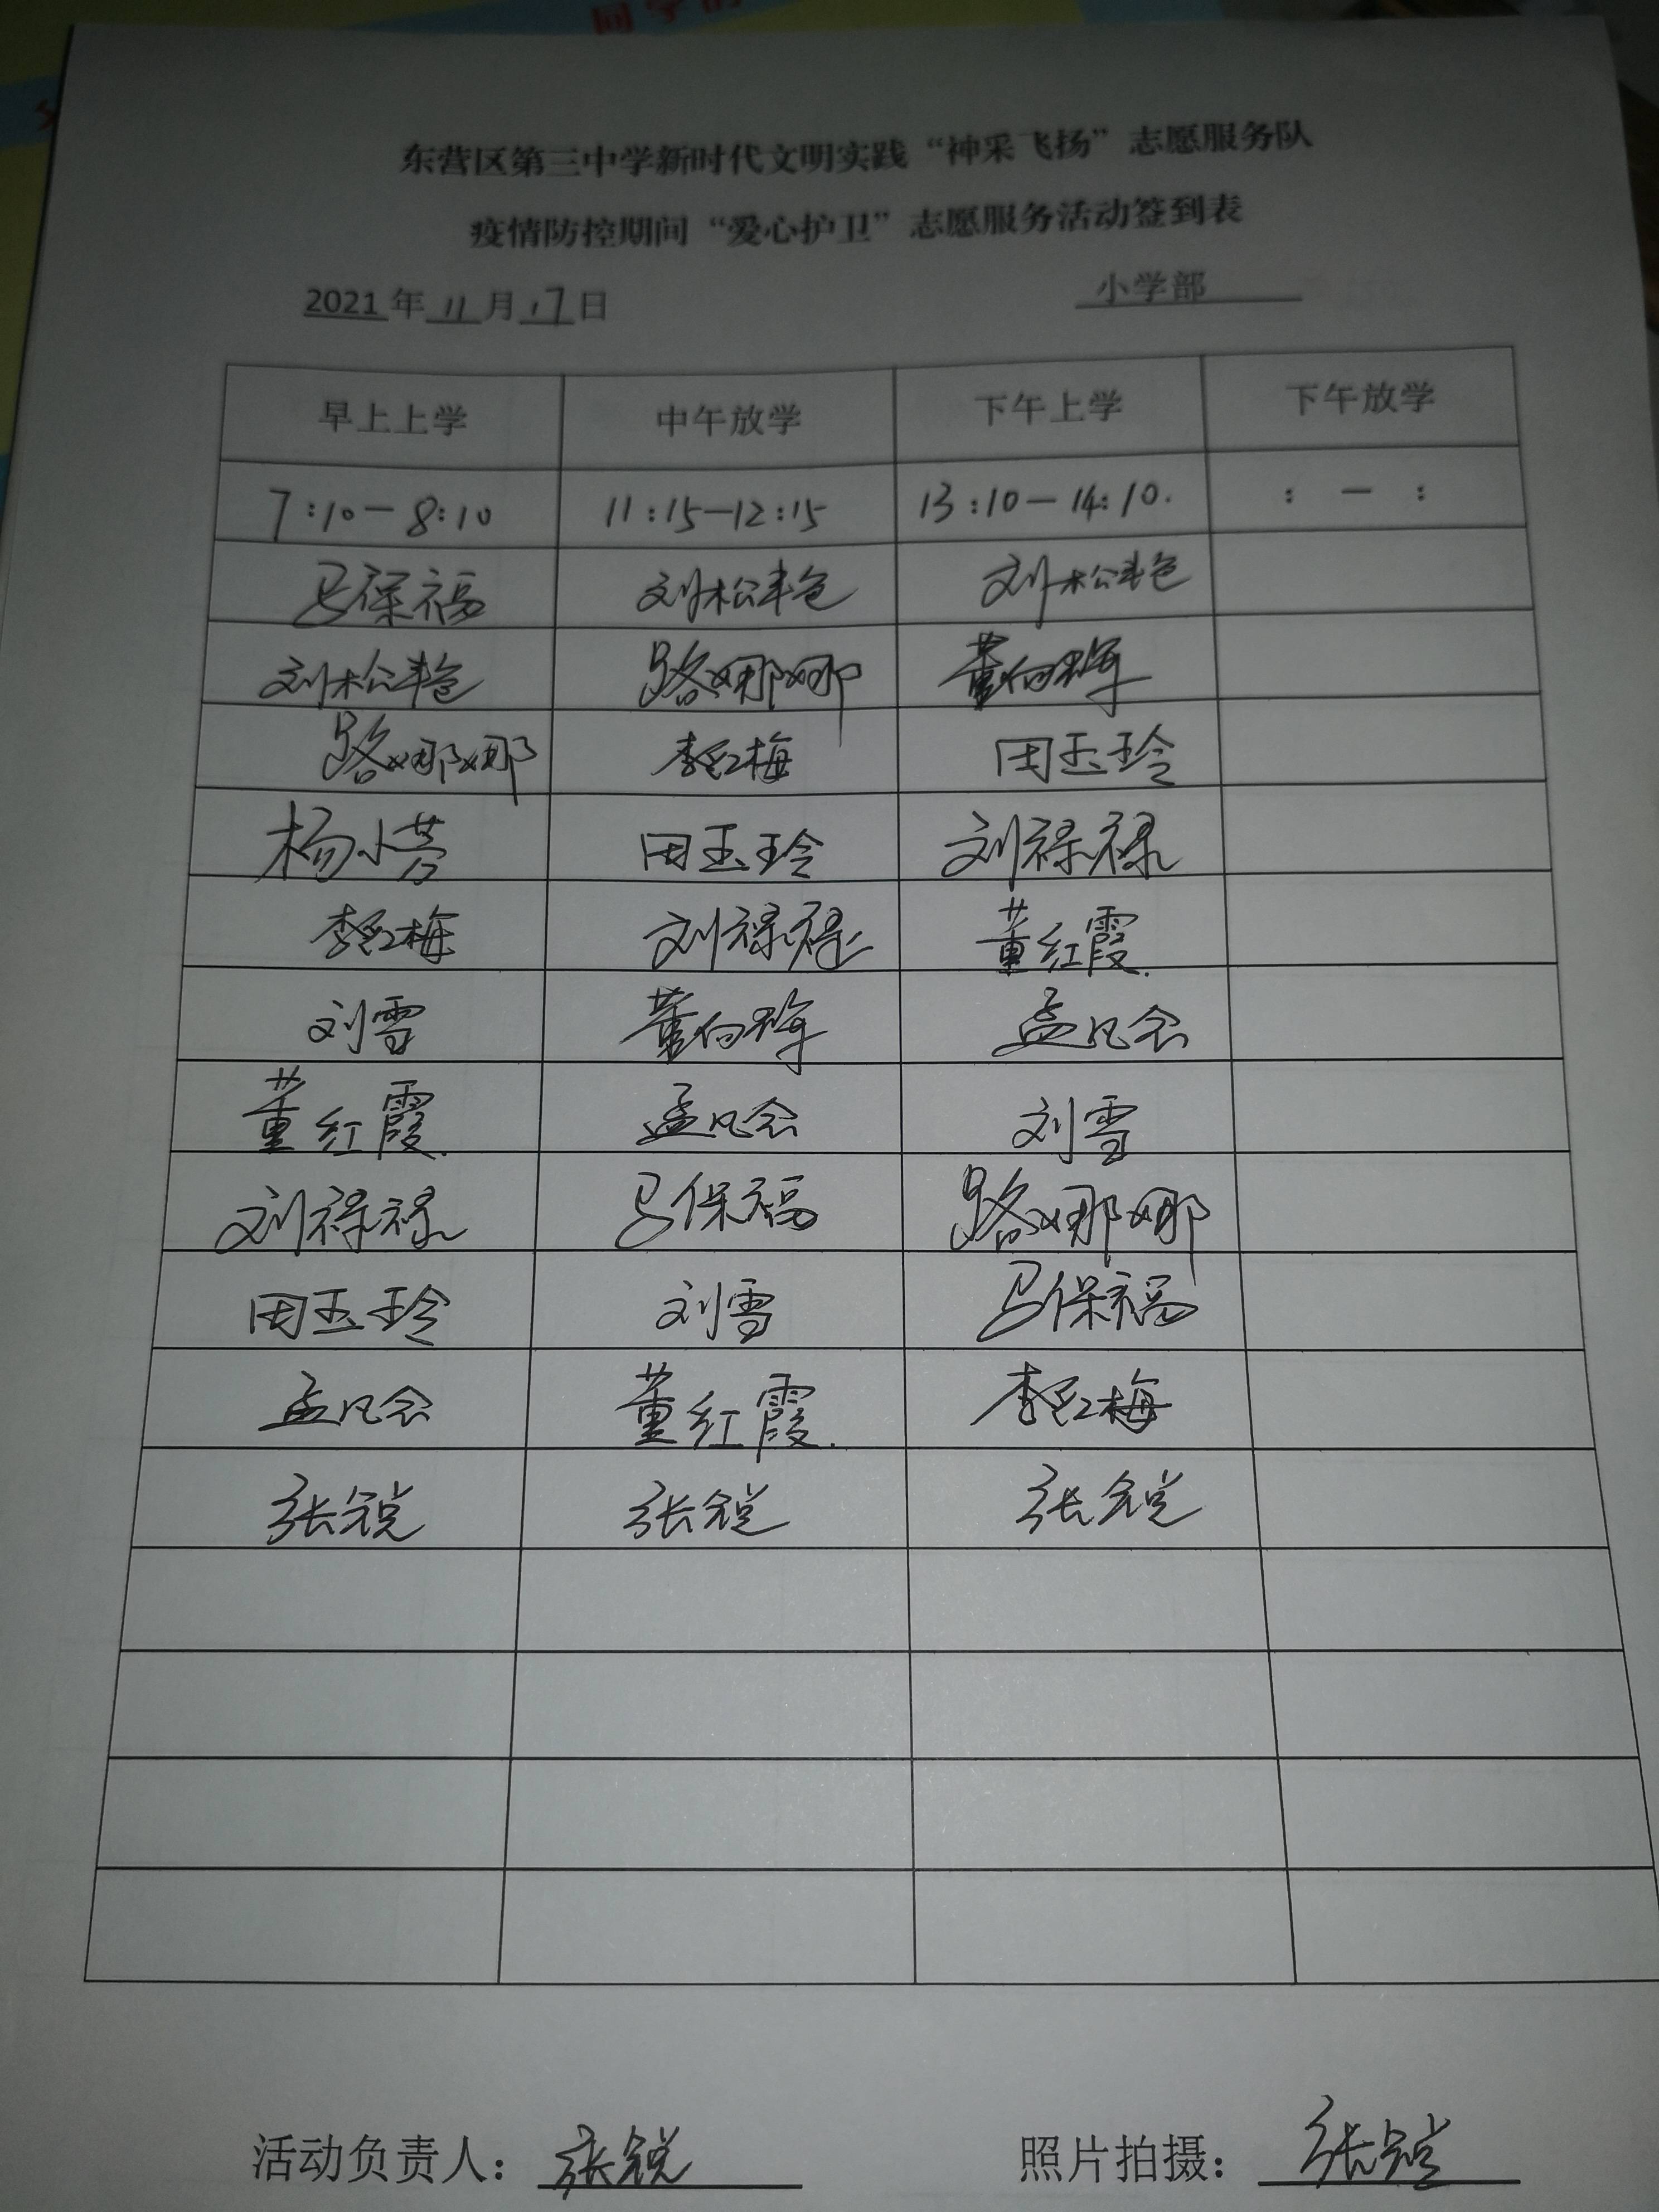 同学的
东营区第三中学新时代文明实践“神采飞扬”志愿服务队
疫情防控期间“爱心护卫”志愿服务活动签到表
2021年11月17日 小学部
早上上学 中午放学 下午上学 下午放学
7:10-8:10 11:15-12:15 13:10-14:10. : - :
马保福 刘松艳 刘松艳
刘松艳 路娜娜 董向辉
路娜娜 李红梅 田玉玲
杨小芳 田玉玲 刘禄禄
李红梅 刘禄禄 董红霞.
刘雪 董向辉 孟凡会
董红霞. 孟凡会 刘雪
刘禄禄 马保福 路娜娜
田玉玲 刘雪 马保福
孟凡会 董红霞. 李红梅
张锐 张锐 张锐
活动负责人：张锐 照片拍摄：张锐